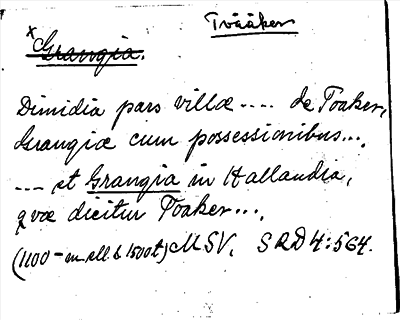 Tvååker
x Grangia.
Dimidia pars villæ .... de Toaker,
Grangiæ cum possessionibus...,
--- et Grangia in Hallandia,
qvæ dicitur Toaker...,
(1100- m ell. b 1500t) MSV, SRD 4:564.